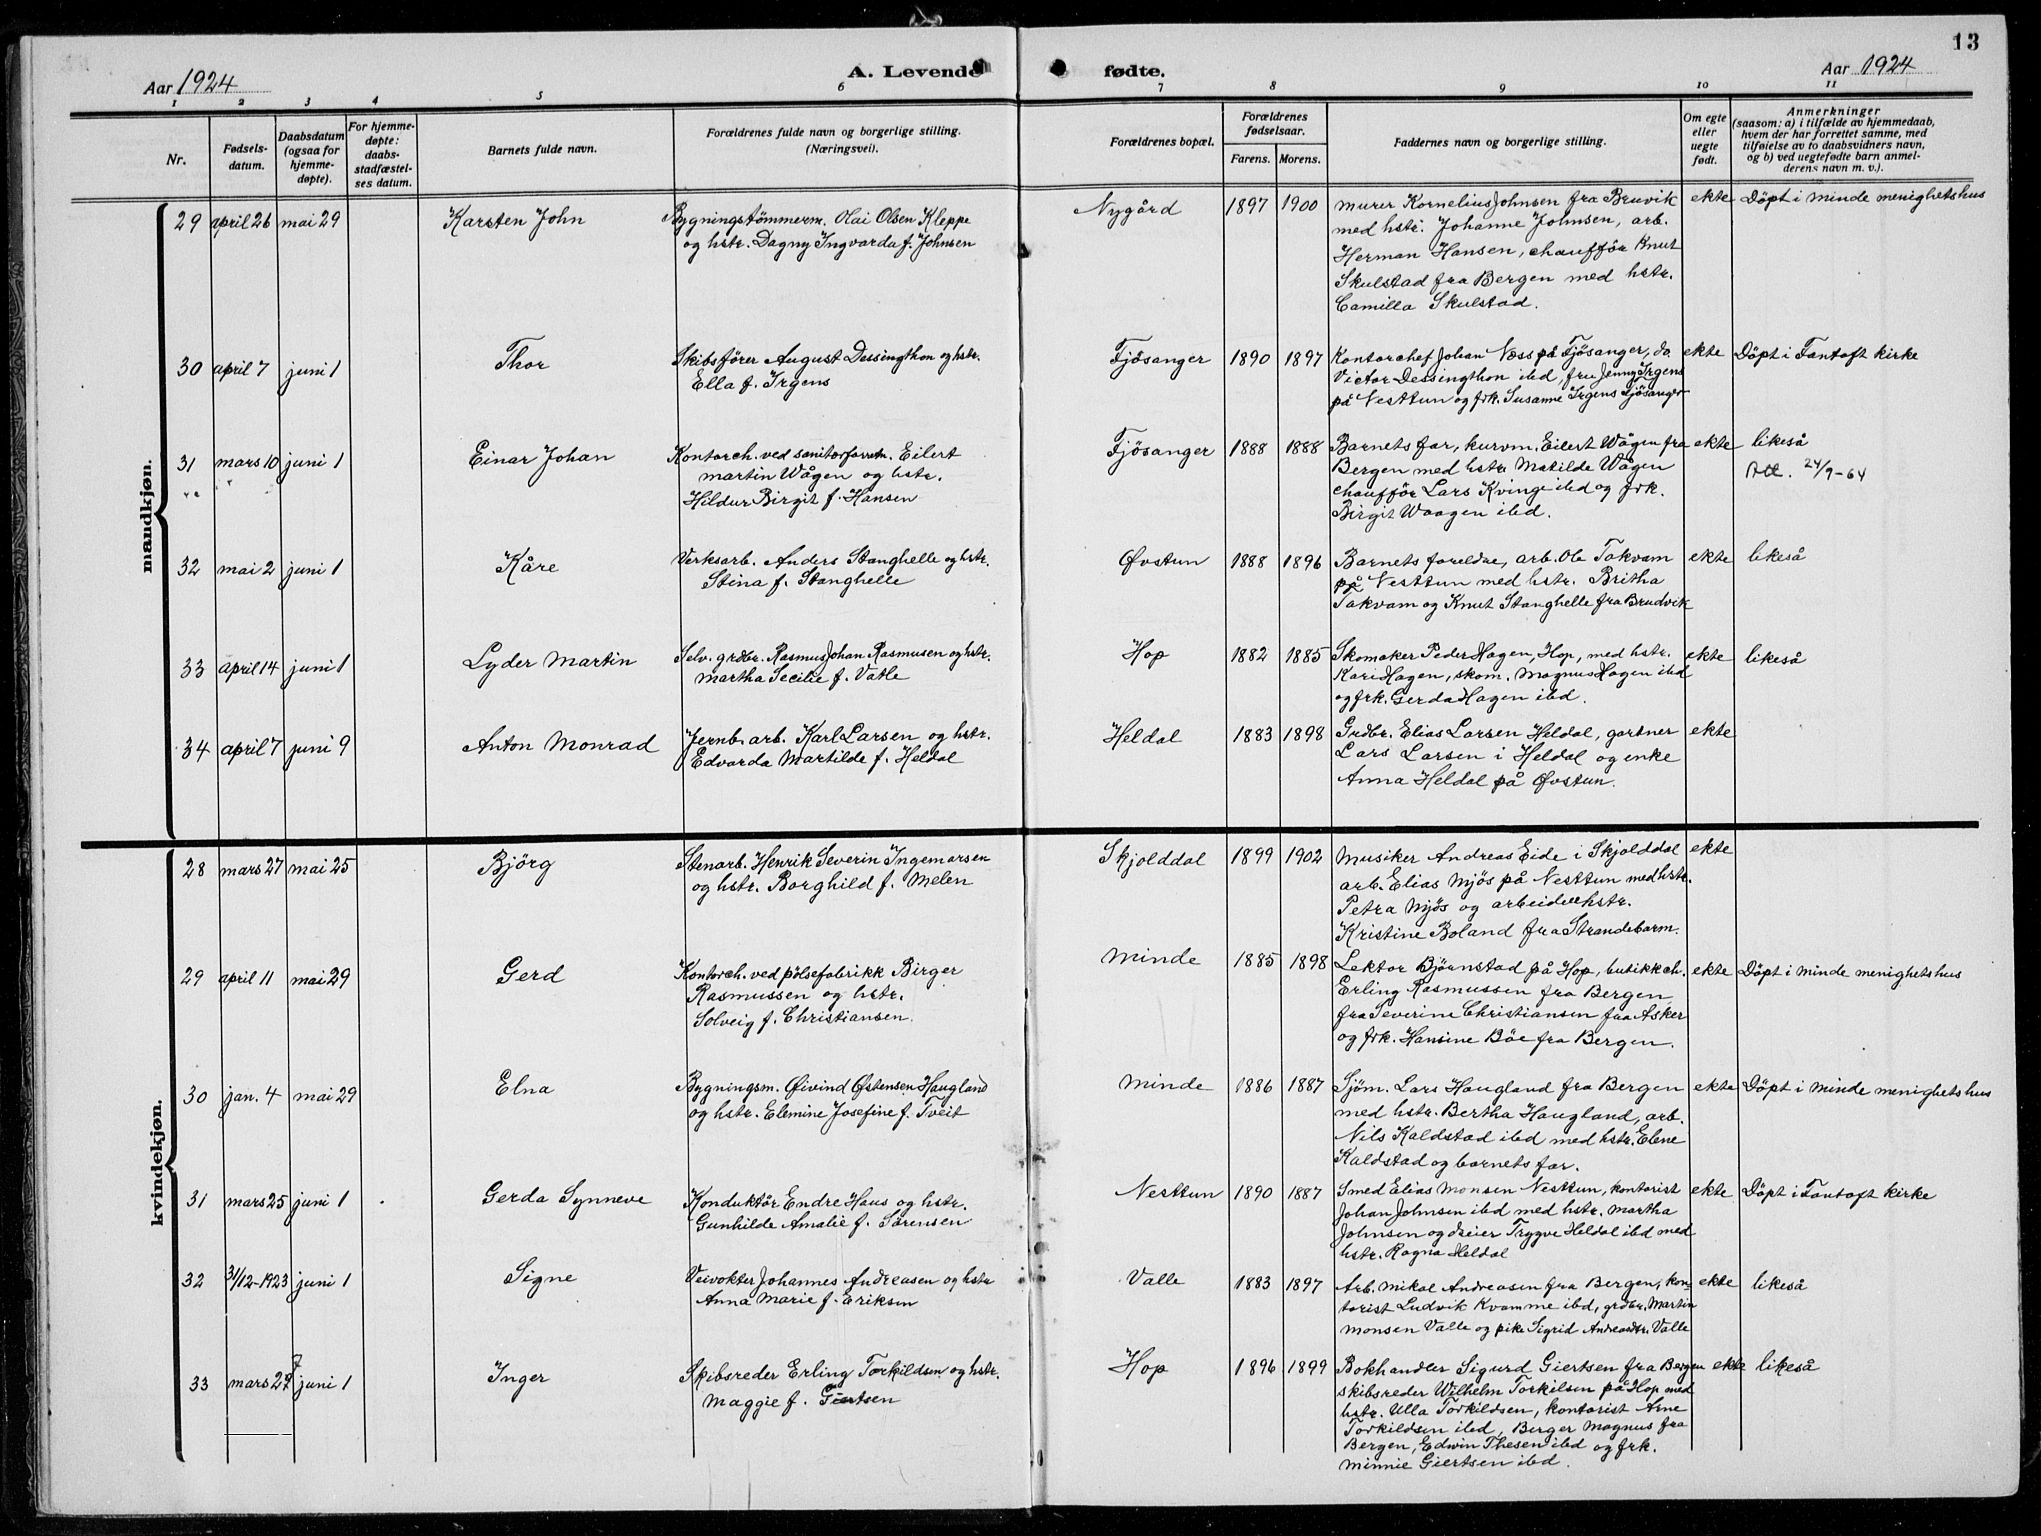 13
Aar 1924
A. Levende fødte.
Aar 1924
1 2 3 4 5 6 7 8 9 10 11
Nr.
Fødsels-
datum.
Daabsdatum
(ogsaa for
hjemme-
døpte).
For hjemme-
døpte:
daabs-
stadfæstel-
ses datum.
Barnets fulde navn.
Forældrenes fulde navn og borgerlige stilling.
(Næringsvei).
Forældrenes bopæl.
Forældrenes
fødselsaar.
Farens. Morens.
Faddernes navn og borgerlige stilling.
Om egte
eller
uegte
født.
Anmerkninger
(saasom: a) i tilfælde av hjemmedaab,
hvem der har forrettet samme, med
tilføielse av to daabsvidners navn,
og b) ved uegtefødte barn anmel-
derens navn m. v.).
mandkjøn.
29 april 26 mai 29 Karsten John
Bygningstömmerm. Olai Olsen Kleppe
og hstr. Dagny Ingvarda f. Johnsen
Nygård 1897 1900
murer Kornelius Johnsen fra Bruvik
med hstr. Johanne Johnsen, arb.
Herman Hansen, chaufför Knut
Skulstad fra Bergen med hstr.
Camilla Skulstad.
ekte Döpt i minde menighetshus
30 april 7 juni 1 Thor
Skibsförer August Dessingthon og hstr.
Ella f. Irgens
Fjösanger 1890 1897
Kontorchef Johan Næss på Fjösanger, do.
Victor Dessingthon ibd, fru Jenny Irgens
på Nesttun og frk. Susanne Irgens Fjösanger
ekte Döpt i Fantoft kirke
31 mars 10 juni 1 Einar Johan
Kontorch. ved sanitorforretn. Eilert
martin Wågen og hstr.
Hildur Birgit f. Hansen
Fjösanger 1888 1888
Barnets far, kurvm. Eilert Wågen fra
Bergen med hstr. Matilde Wågen
chaufför Lars Kvinge ibd og frk.
Birgit Waagen ibd.
ekte likeså
Att. 24/9-64
32 mai 2 juni 1 Kåre
Verksarb. Anders Stanghelle og hstr.
Stina f. Stanghelle
Øvstun 1888 1896
Barnets foreldre, arb. Ole Takvam
på Nesttun med hstr. Britha
Takvam og Knut Stanghelle fra Brudvik
ekte likeså
33 april 14 juni 1 Lyder Martin
Selv. grdbr. Rasmus Johan Rasmusen og hstr.
martha Secilie f. Vatle
Hop 1882 1885
Skomaker Peder Hagen, Hop, med hstr.
Kari Hagen, skom. Magnus Hagen ibd
og frk. Gerda Hagen ibd.
ekte likeså
34 april 7 juni 9 Anton Monrad
Jernb. arb. Karl Larsen og hstr.
Edvarda Martilde f. Heldal
Heldal 1883 1898
Grdbr. Elias Larsen Heldal, gartner
Lars Larsen i Heldal og enke
Anna Heldal på Øvstun.
ekte
kvindekjøn.
28 mars 27 mai 25 Bjørg
Stenarb. Henrik Severin Ingemarsen
og hstr. Borghild f. Melen
Skjolddal 1899 1902
Musiker Andreas Eide i Skjolddal
arb. Elias Mjös på Nesttun med hstr.
Petra Mjös og arbeiderhstr.
Kristine Boland fra Strandebarm.
ekte
29 april 11 mai 29 Gerd
Kontorch. ved pölsefabrikk Birger
Rasmussen og hstr.
Solveig f. Christiansen.
Minde 1885 1898
Lektor Björnstad på Hop, butikkch.
Erling Rasmussen fra Bergen,
fra Severine Christiansen fra Asker
og frk. Hansine Böe fra Bergen.
ekte Döpt i minde menighetshus
30 jan. 4 mai 29 Elna
Bygningsm. Øivind Østensen Haugland
og hstr. Elemine Josefine f. Tveit
Minde 1886 1887
Sjöm. Lars Haugland fra Bergen
med hstr. Bertha Haugland, arb.
Nils Kaldstad ibd med hstr. Elene
Kaldstad og barnets far.
ekte Döpt i minde menighetshus
31 mars 25 juni 1 Gerda Synneve
Konduktör Endre Haus og hstr.
Gunhilde Amalie f. Sörensen
Nesttun 1890 1887
Smed Elias Monsen Nesttun, kontorist
Johan Johnsen ibd med hstr. Martha
Johnsen og dreier Trygve Heldal ibd med
hstr. Ragna Heldal
ekte Döpt i Fantoft kirke
32 31/12-1923 juni 1 Signe
Veivokter Johannes Andreasen og hstr
Anna Marie f. Eriksen
Valle 1883 1897
Arb. Mikal Andreasen fra Bergen, kon-
torist Ludvik Kvamme ibd, grdbr. Martin
Monsen Valle og pike Sigrid Andreasdtr. Valle
ekte likeså
33 mars 27 juni 1 Inger
Skibsreder Erling Torkildsen og hstr.
Maggie f. Giertsen
Hop 1896 1899
Bokhandler Sigurd Giertsen fra Bergen
skibsreder Wilhelm Torkilsen på Hop med
hstr. Ulla Torkildsen, kontorist Arne
Torkildsen ibd, Berger Magnus fra
Bergen, Edwin Thesen ibd og frk.
Minnie Giertsen ibd.
ekte likeså